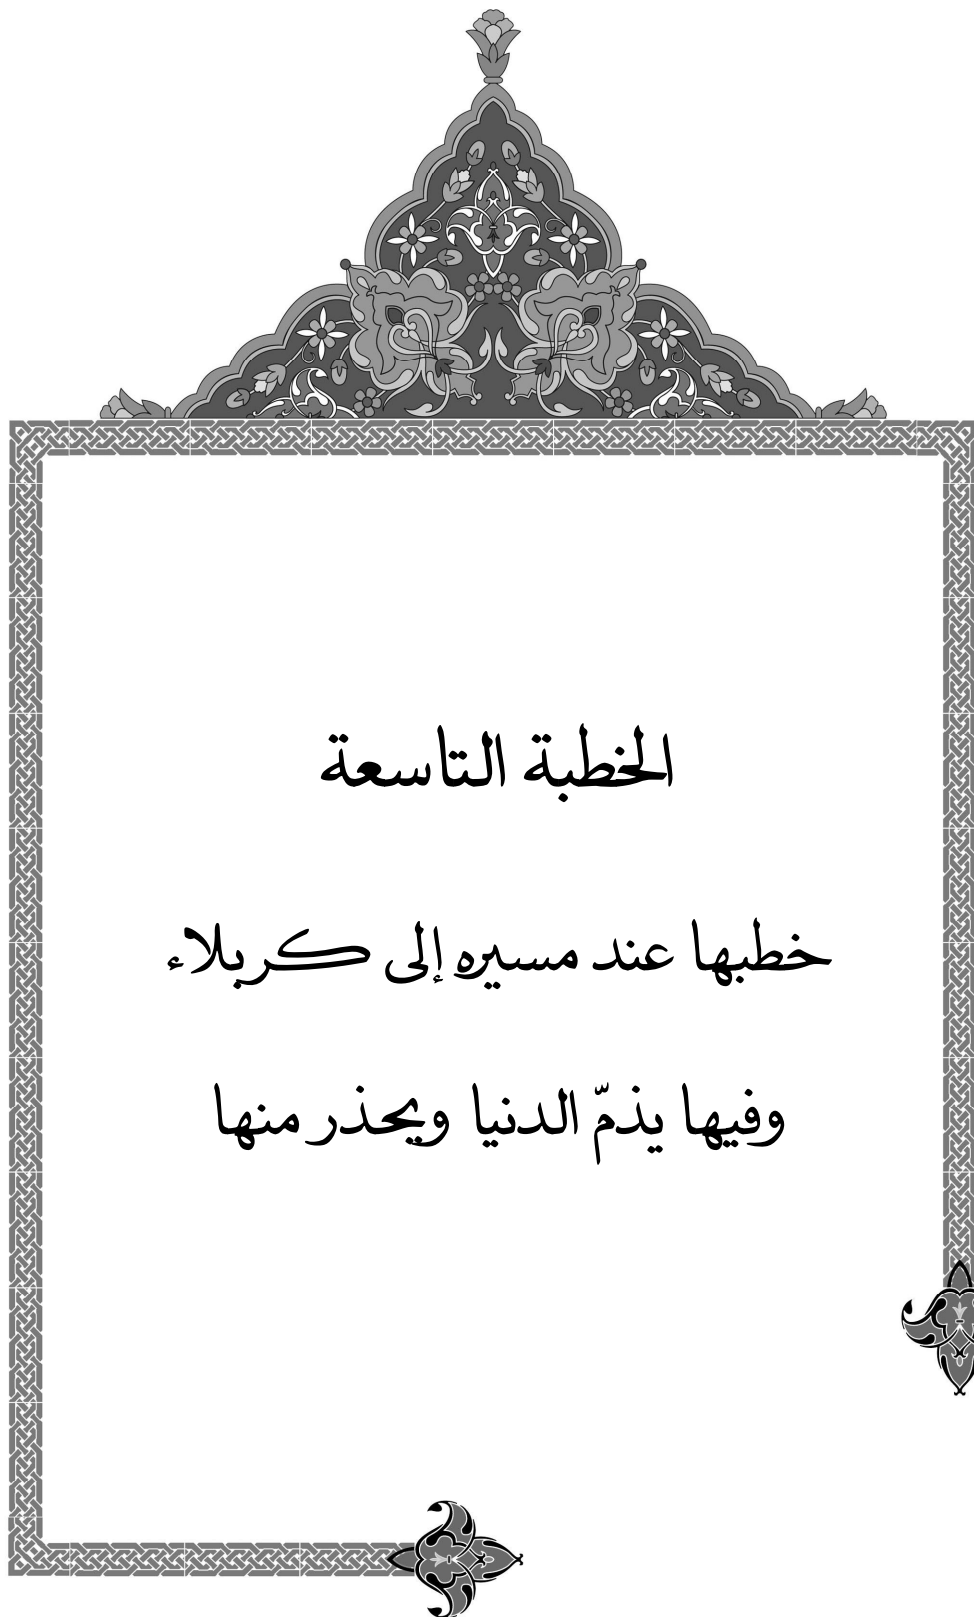 الخطبة التاسعة
خطبها عند مسيره إلى كربلاء
وفيها يذمّ الدنيا ويحذر منها